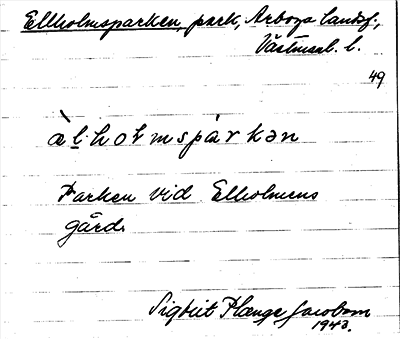 Ellholmsparken, park, Arboga landsf.,
Västmanl. l.
49
æ̀l̠holmspárkən
Parken vid Ellholmens
gård.
Sigbrit Plænge Jacobson
1943.